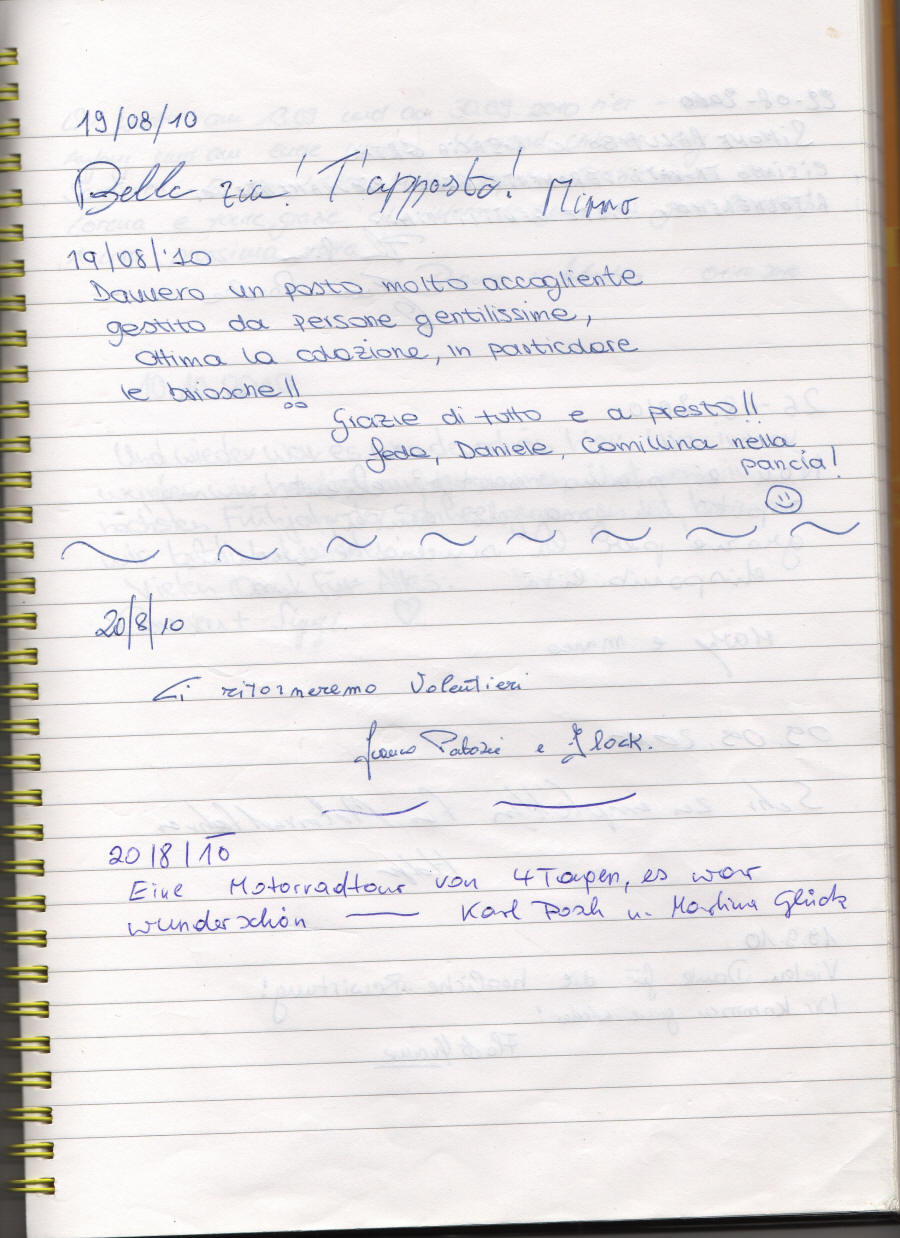 19/08/10
Bella zia! T'apposto! Mimmo
19/08/'10
Davvero un posto molto accogliente
gestito da persone gentilissime,
ottima la colazione, in particolare
le brioche!!
Grazie di tutto e a presto!!
fede, Daniele, Camillina nella
pancia!
20/8/10
Ci ritorneremo volentieri
Franco e
20/8/10
Eine Motorradtour von 4 Tagen, es war
wunderschön — Karl Posch u. Martina Glück